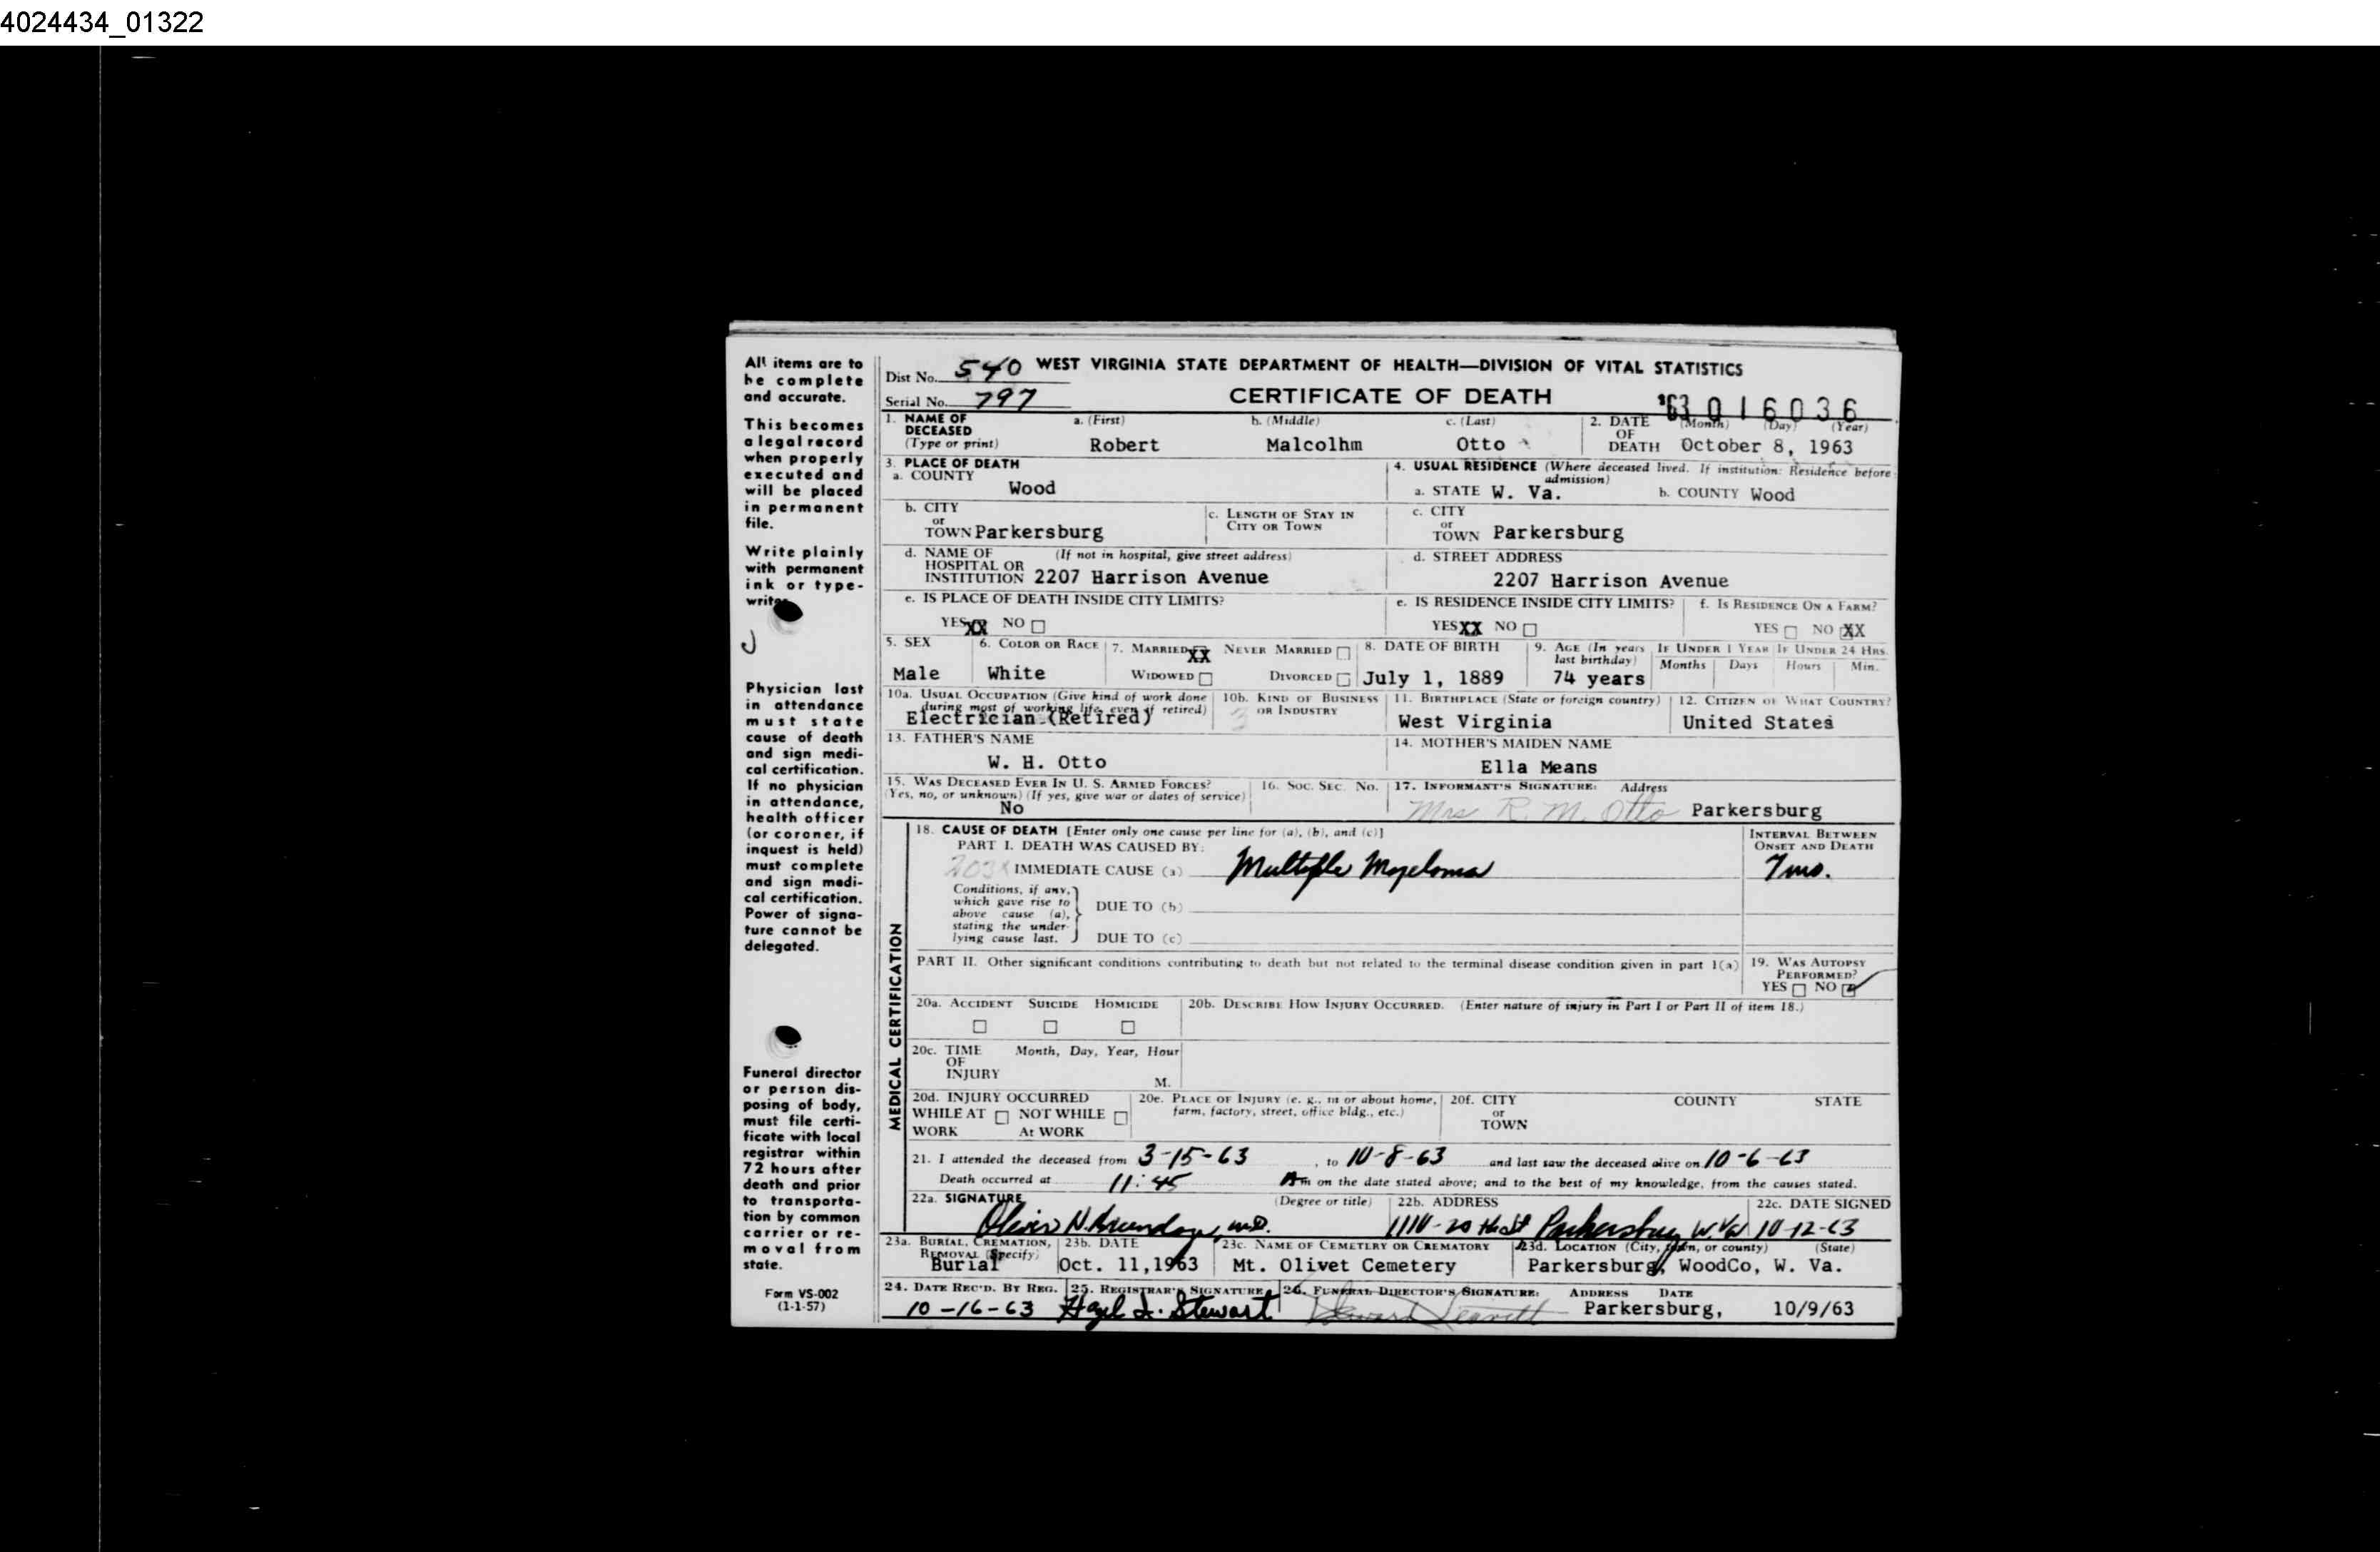 4024434_01322
All items are to
be complete
and accurate.
This becomes
a legal record
when properly
executed and
will be placed
in permanent
file.
Write plainly
with permanent
ink or type-
writer
Physician last
in attendance
must state
cause of death
and sign medi-
cal certification.
If no physician
in attendance,
health officer
(or coroner, if
inquest is held)
must complete
and sign medi-
cal certification.
Power of signa-
ture cannot be
delegated.
Funeral director
or person dis-
posing of body,
must file certi-
ficate with local
registrar within
72 hours after
death and prior
to transporta-
tion by common
carrier or re-
moval from
state.
Form VS-002
(1-1-57)
Dist No. 540 WEST VIRGINIA STATE DEPARTMENT OF HEALTH—DIVISION OF VITAL STATISTICS
Serial No. 797 CERTIFICATE OF DEATH '63 016036
1. NAME OF DECEASED (Type or print) a. (First) b. (Middle) c. (Last) 2. DATE OF DEATH (Month) (Day) (Year)
Robert Malcolhm Otto October 8, 1963
3. PLACE OF DEATH 4. USUAL RESIDENCE (Where deceased lived. If institution: Residence before admission)
a. COUNTY Wood a. STATE W. Va. b. COUNTY Wood
b. CITY or TOWN Parkersburg c. LENGTH OF STAY IN CITY OR TOWN c. CITY or TOWN Parkersburg
d. NAME OF HOSPITAL OR INSTITUTION (If not in hospital, give street address) 2207 Harrison Avenue d. STREET ADDRESS 2207 Harrison Avenue
e. IS PLACE OF DEATH INSIDE CITY LIMITS? e. IS RESIDENCE INSIDE CITY LIMITS? f. IS RESIDENCE ON A FARM?
YES XX NO YES XX NO YES NO XX
5. SEX 6. COLOR OR RACE 7. MARRIED XX NEVER MARRIED 8. DATE OF BIRTH 9. AGE (In years last birthday) IF UNDER 1 YEAR IF UNDER 24 HRS.
Months Days Hours Min.
Male White WIDOWED DIVORCED July 1, 1889 74 years
10a. USUAL OCCUPATION (Give kind of work done during most of working life, even if retired) 10b. KIND OF BUSINESS OR INDUSTRY 11. BIRTHPLACE (State or foreign country) 12. CITIZEN OF WHAT COUNTRY?
Electrician (Retired) 3 West Virginia United States
13. FATHER'S NAME 14. MOTHER'S MAIDEN NAME
W. H. Otto Ella Means
15. WAS DECEASED EVER IN U. S. ARMED FORCES? 16. SOC. SEC. NO. 17. INFORMANT'S SIGNATURE: Address
(Yes, no, or unknown) (If yes, give war or dates of service)
No Mrs R. M. Otto Parkersburg
MEDICAL CERTIFICATION
18. CAUSE OF DEATH [Enter only one cause per line for (a), (b), and (c)] INTERVAL BETWEEN ONSET AND DEATH
PART I. DEATH WAS CAUSED BY:
203X IMMEDIATE CAUSE (a) Multiple Myeloma 7 mo.
Conditions, if any, which gave rise to above cause (a), stating the under-lying cause last.
DUE TO (b)
DUE TO (c)
PART II. Other significant conditions contributing to death but not related to the terminal disease condition given in part I(a) 19. WAS AUTOPSY PERFORMED?
YES NO
20a. ACCIDENT SUICIDE HOMICIDE 20b. DESCRIBE HOW INJURY OCCURRED. (Enter nature of injury in Part I or Part II of item 18.)
20c. TIME OF INJURY Month, Day, Year, Hour
M.
20d. INJURY OCCURRED 20e. PLACE OF INJURY (e. g., in or about home, farm, factory, street, office bldg., etc.) 20f. CITY or TOWN COUNTY STATE
WHILE AT WORK NOT WHILE At WORK
21. I attended the deceased from 3-15-63, to 10-8-63 and last saw the deceased alive on 10-6-63
Death occurred at 11:45 Am on the date stated above; and to the best of my knowledge, from the causes stated.
22a. SIGNATURE (Degree or title) 22b. ADDRESS 22c. DATE SIGNED
N. M.D. 1110-20th St Parkersburg W.Va 10-12-63
23a. BURIAL, CREMATION, REMOVAL (Specify) 23b. DATE 23c. NAME OF CEMETERY OR CREMATORY 23d. LOCATION (City, town, or county) (State)
Burial Oct. 11,1963 Mt. Olivet Cemetery Parkersburg, WoodCo, W. Va.
24. DATE REC'D. BY REG. 25. REGISTRAR'S SIGNATURE 26. FUNERAL DIRECTOR'S SIGNATURE: ADDRESS DATE
10-16-63 Hazel L. Stewart Parkersburg, 10/9/63